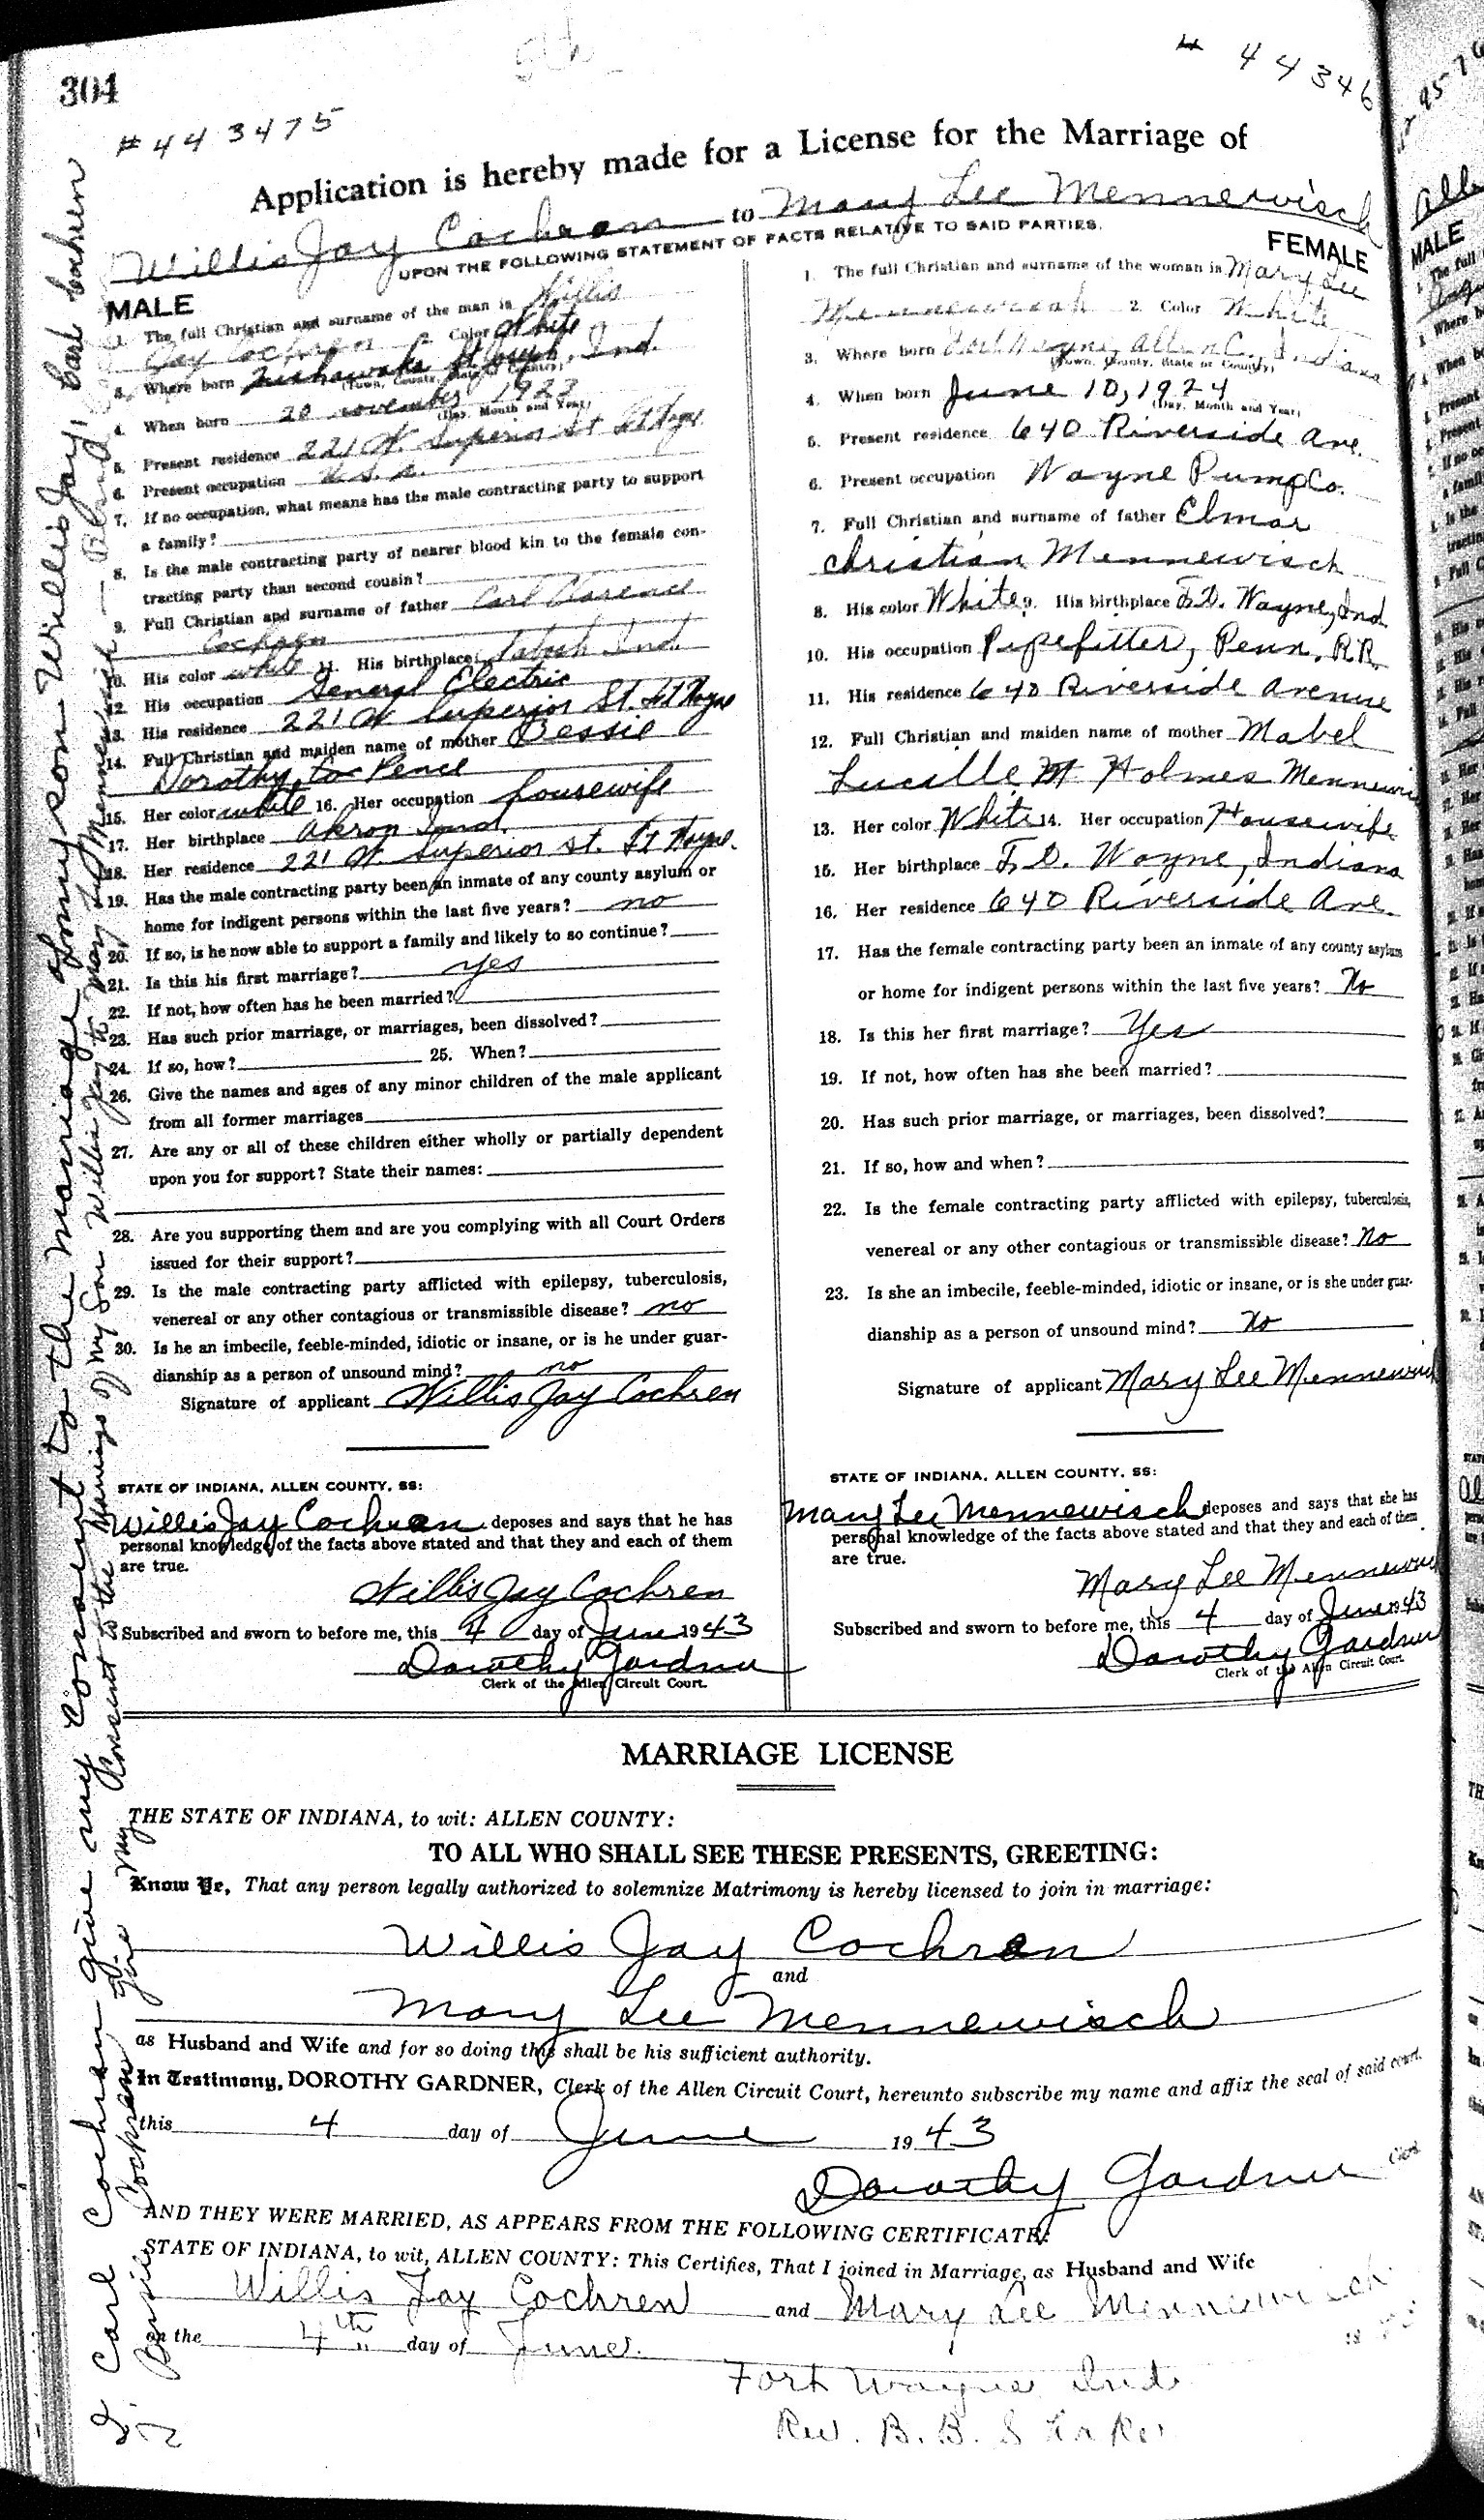 304
# 443475
# 44346
Application is hereby made for a License for the Marriage of
Willis Jay Cochren to Mary Lee Mennewisch
UPON THE FOLLOWING STATEMENT OF FACTS RELATIVE TO SAID PARTIES.
MALE
1. The full Christian and surname of the man is Willis
Jay Cochren 2. Color White
3. Where born Mishawaka St Joseph, Ind.
(Town, County, State or Country)
4. When born 20 November 1922
(Day, Month and Year)
5. Present residence 221 W. Superior St Ft Wayne
6. Present occupation
7. If no occupation, what means has the male contracting party to support
a family?
8. Is the male contracting party of nearer blood kin to the female con-
tracting party than second cousin?
9. Full Christian and surname of father Carl Clarence
Cochren
10. His color white 11. His birthplace Ind.
12. His occupation General Electric
13. His residence 221 W. Superior St. Ft Wayne
14. Full Christian and maiden name of mother Bessie
Dorothy Pence
15. Her color white 16. Her occupation housewife
17. Her birthplace Akron Ind
18. Her residence 221 W. Superior St. Ft Wayne.
19. Has the male contracting party been an inmate of any county asylum or
home for indigent persons within the last five years? no
20. If so, is he now able to support a family and likely to so continue?
21. Is this his first marriage? yes
22. If not, how often has he been married?
23. Has such prior marriage, or marriages, been dissolved?
24. If so, how? 25. When?
26. Give the names and ages of any minor children of the male applicant
from all former marriages
27. Are any or all of these children either wholly or partially dependent
upon you for support? State their names:
28. Are you supporting them and are you complying with all Court Orders
issued for their support?
29. Is the male contracting party afflicted with epilepsy, tuberculosis,
venereal or any other contagious or transmissible disease? no
30. Is he an imbecile, feeble-minded, idiotic or insane, or is he under guar-
dianship as a person of unsound mind? no
Signature of applicant Willis Jay Cochren
STATE OF INDIANA, ALLEN COUNTY, SS:
Willis Jay Cochren deposes and says that he has
personal knowledge of the facts above stated and that they and each of them
are true.
Willis Jay Cochren
Subscribed and sworn to before me, this 4 day of June 1943
Dorothy Gardner
Clerk of the Allen Circuit Court.
FEMALE
1. The full Christian and surname of the woman is Mary Lee
Mennewisch 2. Color White
3. Where born Fort Wayne, Allen Co., Indiana
(Town, County, State or Country)
4. When born June 10, 1924
(Day, Month and Year)
5. Present residence 640 Riverside Ave.
6. Present occupation Wayne Pump Co.
7. Full Christian and surname of father Elmar
Christian Mennewisch
8. His color White 9. His birthplace Ft. Wayne, Ind
10. His occupation Pipefitter, Penn. R.R.
11. His residence 640 Riverside Avenue
12. Full Christian and maiden name of mother Mabel
Lucille Holmes Mennewisch
13. Her color White 14. Her occupation Housewife
15. Her birthplace Ft. Wayne, Indiana
16. Her residence 640 Riverside Ave.
17. Has the female contracting party been an inmate of any county asylum
or home for indigent persons within the last five years? No
18. Is this her first marriage? Yes
19. If not, how often has she been married?
20. Has such prior marriage, or marriages, been dissolved?
21. If so, how and when?
22. Is the female contracting party afflicted with epilepsy, tuberculosis,
venereal or any other contagious or transmissible disease? No
23. Is she an imbecile, feeble-minded, idiotic or insane, or is she under guar-
dianship as a person of unsound mind? No
Signature of applicant Mary Lee Mennewisch
STATE OF INDIANA, ALLEN COUNTY, SS:
Mary Lee Mennewisch deposes and says that she has
personal knowledge of the facts above stated and that they and each of them
are true.
Mary Lee Mennewisch
Subscribed and sworn to before me, this 4 day of June 1943
Dorothy Gardner
Clerk of the Allen Circuit Court.
MARRIAGE LICENSE
THE STATE OF INDIANA, to wit: ALLEN COUNTY:
TO ALL WHO SHALL SEE THESE PRESENTS, GREETING:
Know Ye, That any person legally authorized to solemnize Matrimony is hereby licensed to join in marriage:
Willis Jay Cochren
and
Mary Lee Mennewisch
as Husband and Wife and for so doing this shall be his sufficient authority.
In Testimony, DOROTHY GARDNER, Clerk of the Allen Circuit Court, hereunto subscribe my name and affix the seal of said court.
this 4 day of June 1943
Dorothy Gardner Clerk
AND THEY WERE MARRIED, AS APPEARS FROM THE FOLLOWING CERTIFICATE:
STATE OF INDIANA, to wit, ALLEN COUNTY: This Certifies, That I joined in Marriage, as Husband and Wife
Willis Jay Cochren and Mary Lee Mennewisch
on the 4th day of June
Fort Wayne Ind
Rev. B. B.
I Carl Cochren give my consent to the marriage of my son Willis Jay, Carl Cochren
I Bessie Cochren give my Consent to the Marriage of my Son Willis Jay to Mary Lee Mennewisch